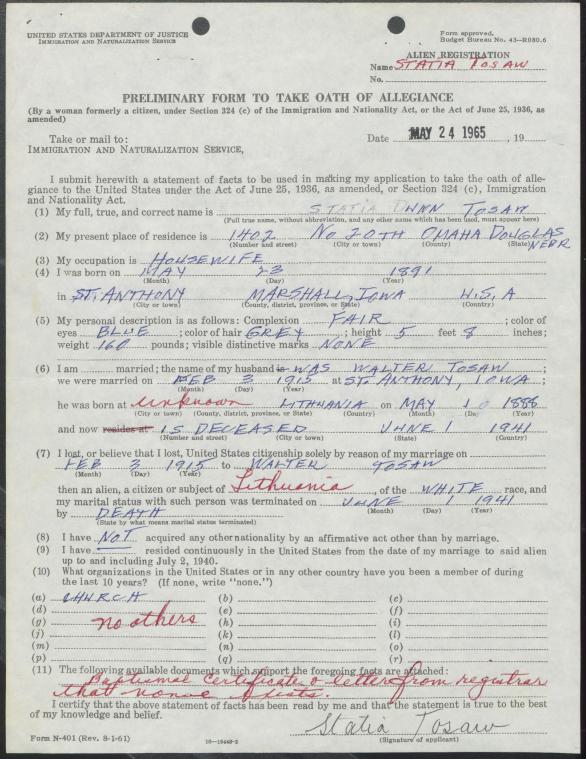 UNITED STATES DEPARTMENT OF JUSTICE
IMMIGRATION AND NATURALIZATION SERVICE
Form approved.
Budget Bureau No. 43—R080.6
ALIEN REGISTRATION
Name STATIA TOSAW
No.
PRELIMINARY FORM TO TAKE OATH OF ALLEGIANCE
(By a woman formerly a citizen, under Section 324 (c) of the Immigration and Nationality Act, or the Act of June 25, 1936, as
amended)
Take or mail to:
IMMIGRATION AND NATURALIZATION SERVICE,
Date MAY 24 1965, 19
I submit herewith a statement of facts to be used in making my application to take the oath of alle-
giance to the United States under the Act of June 25, 1936, as amended, or Section 324 (c), Immigration
and Nationality Act.
(1) My full, true, and correct name is STATIA TOSAW
(Full true name, without abbreviation, and any other name which has been used, must appear here)
(2) My present place of residence is 1402 No 20TH OMAHA DOUGLAS NEBR
(Number and street) (City or town) (County) (State)
(3) My occupation is HOUSEWIFE
(4) I was born on MAY 23 1891
(Month) (Day) (Year)
in ST. ANTHONY MARSHALL, IOWA U.S.A
(City or town) (County, district, province, or State) (Country)
(5) My personal description is as follows: Complexion FAIR; color of
eyes BLUE; color of hair GREY; height 5 feet 8 inches;
weight 160 pounds; visible distinctive marks NONE
(6) I am married; the name of my husband is WAS WALTER TOSAW;
we were married on FEB 3 1915 at ST. ANTHONY, IOWA;
(Month) (Day) (Year)
he was born at unknown LITHUANIA on MAY 10 1888
(City or town) (County, district, province, or State) (Country) (Month) (Day) (Year)
and now resides at IS DECEASED JUNE 1 1941
(Number and street) (City or town) (State) (Country)
(7) I lost, or believe that I lost, United States citizenship solely by reason of my marriage on
FEB 3 1915 to WALTER TOSAW
(Month) (Day) (Year)
then an alien, a citizen or subject of Lithuania, of the WHITE race, and
my marital status with such person was terminated on JUNE 1 1941
(Month) (Day) (Year)
by DEATH
(State by what means marital status terminated)
(8) I have NOT acquired any other nationality by an affirmative act other than by marriage.
(9) I have resided continuously in the United States from the date of my marriage to said alien
up to and including July 2, 1940.
(10) What organizations in the United States or in any other country have you been a member of during
the last 10 years? (If none, write "none.")
(a) CHURCH (b) (c)
(d) (e) (f)
(g) no others (h) (i)
(j) (k) (l)
(m) (n) (o)
(p) (q) (r)
(11) The following available documents which support the foregoing facts are attached:
Baptismal Certificate & letter from registrar
that none exists.
I certify that the above statement of facts has been read by me and that the statement is true to the best
of my knowledge and belief.
Statia Tosaw
(Signature of applicant)
Form N-401 (Rev. 8-1-61)